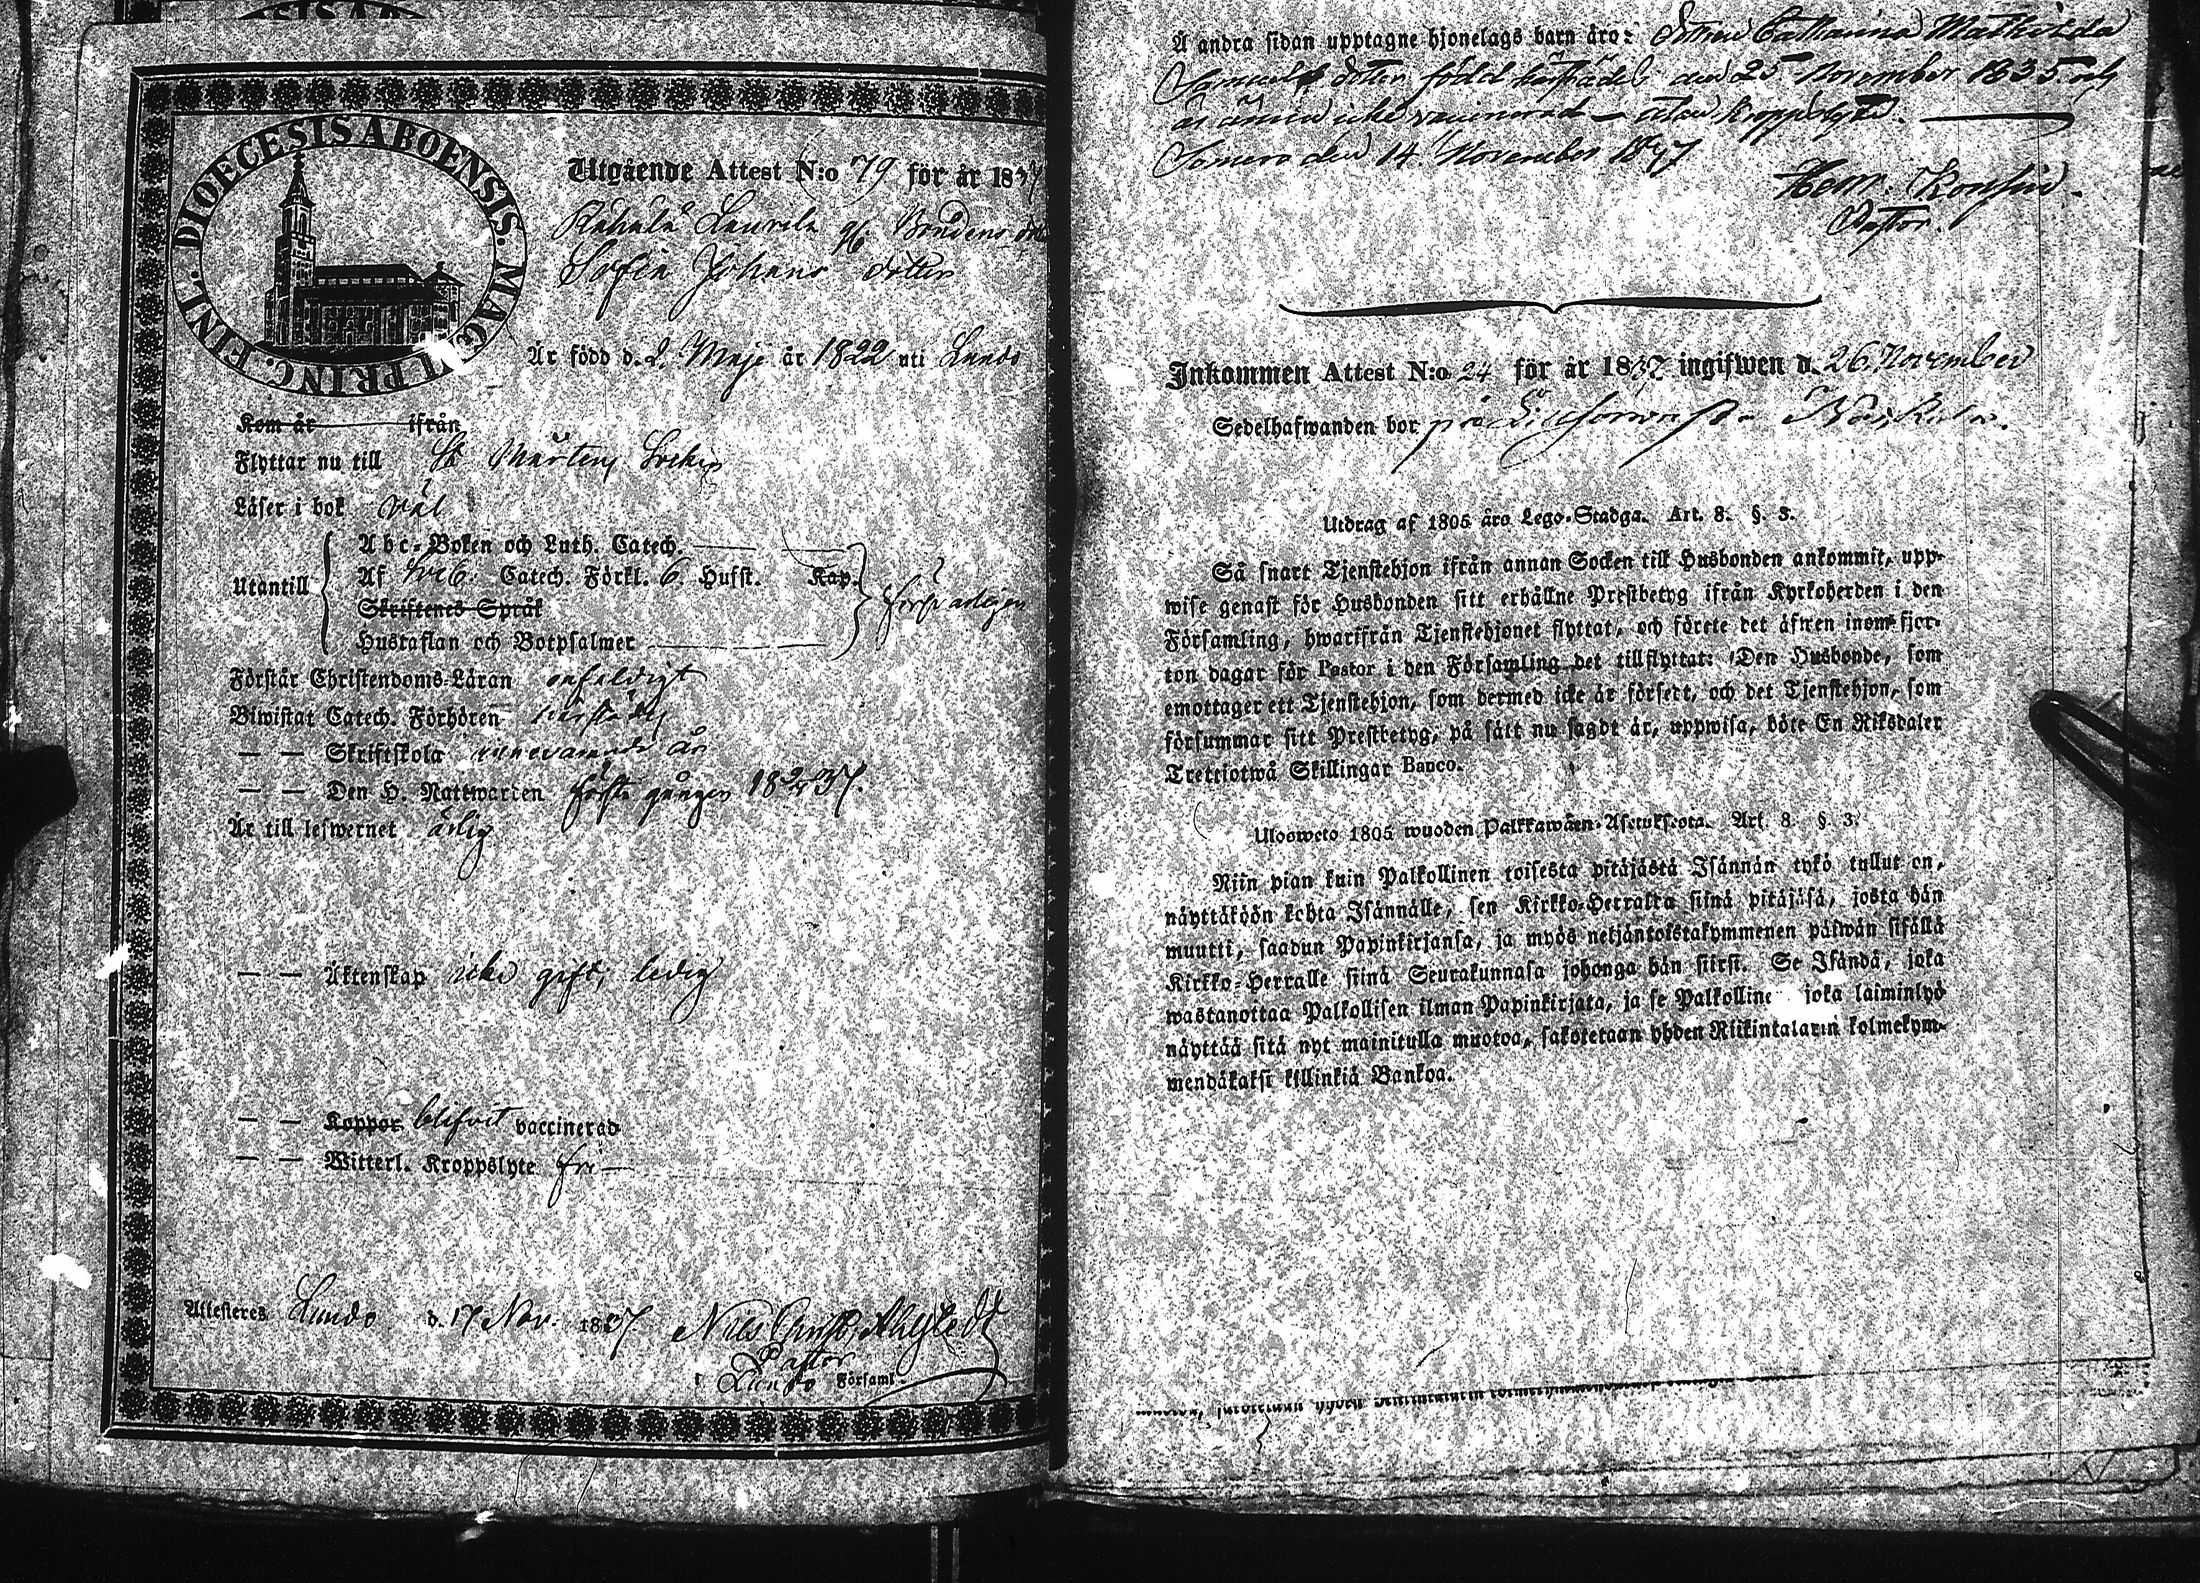 DIOECESIS ABOENSIS. MAGNI PRINC. FINL.
Utgående Attest N:o 79 för år 1837
Laurila Bondens
Sofia Johans dotter
Är född d. 2 Maji år 1822 uti Lundo
Kom år ifrån
Flyttar nu till St Mårtens Socken
Läser i bok väl
Utantill
Abc-Boken och Luth. Catech.
Af Sveb. Catech. Förkl. 6. Hufst. Kap.
försvarligen
Skriftenes Språk
Hustaflan och Botpsalmer
Förstår Christendoms-Läran enfaldigt
Biwistat Catech. Förhören härstädes
— — Skriftskola innevarande år
— — Den H. Nattwarden första gången 1837.
Är till lefwernet ärlig
— — Äktenskap icke gift, ledig
— — Koppor blifvit vaccinerad
— — Witterl. Kroppslyte fri —
Attesteres Lundo d. 17 Nov. 1837. Nils Ahlstedt
Pastor
i Lundo Församl.
Å andra sidan upptagne hjonelags barn äro: dottren Catharina Mathilda
Samuels dotter född härstädes den 25 November 1835 och
är ännu icke vaccinerad — utan kroppslyte.
Somero den 14 November 1837
Henr.
Pastor.
Inkommen Attest N:o 24 för år 1837 ingifwen d. 26 November
Sedelhafwanden bor på
Utdrag af 1805 års Lego-Stadga. Art. 8. §. 3.
Så snart Tjenstehjon ifrån annan Socken till Husbonden ankommit, upp-
wise genast för Husbonden sitt erhållne Prestbetyg ifrån Kyrkoherden i den
Församling, hwarifrån Tjenstehjonet flyttat, och förete det äfwen inom fjor-
ton dagar för Pastor i den Församling det tillflyttat: Den Husbonde, som
emottager ett Tjenstehjon, som dermed icke är försedt, och det Tjenstehjon, som
försummar sitt Prestbetyg, på sätt nu sagdt är, uppwisa, böte En Riksdaler
Trettiotwå Skillingar Banco.
Ulosweto 1805 wuoden Palkkawäen-Asetuksesta. Art. 8. §. 3.
Niin pian kuin Palkollinen toisesta pitäjästä Isännän tykö tullut on,
näyttäköön kohta Isännälle, sen Kirkko-Herralta siinä pitäjäsä, josta hän
muutti, saadun Papinkirjansa, ja myös neljäntoistakymmenen päiwän sisällä
Kirkko-Herralle siinä Seurakunnasa johonga hän siirsi. Se Isändä, joka
wastanottaa Palkollisen ilman Papinkirjata, ja se Palkolline joka laiminlyö
näyttää sitä nyt mainitulla muotoa, sakotetaan yhden Riikintalarin kolmekym-
mendäkaksi killinkiä Bankoa.